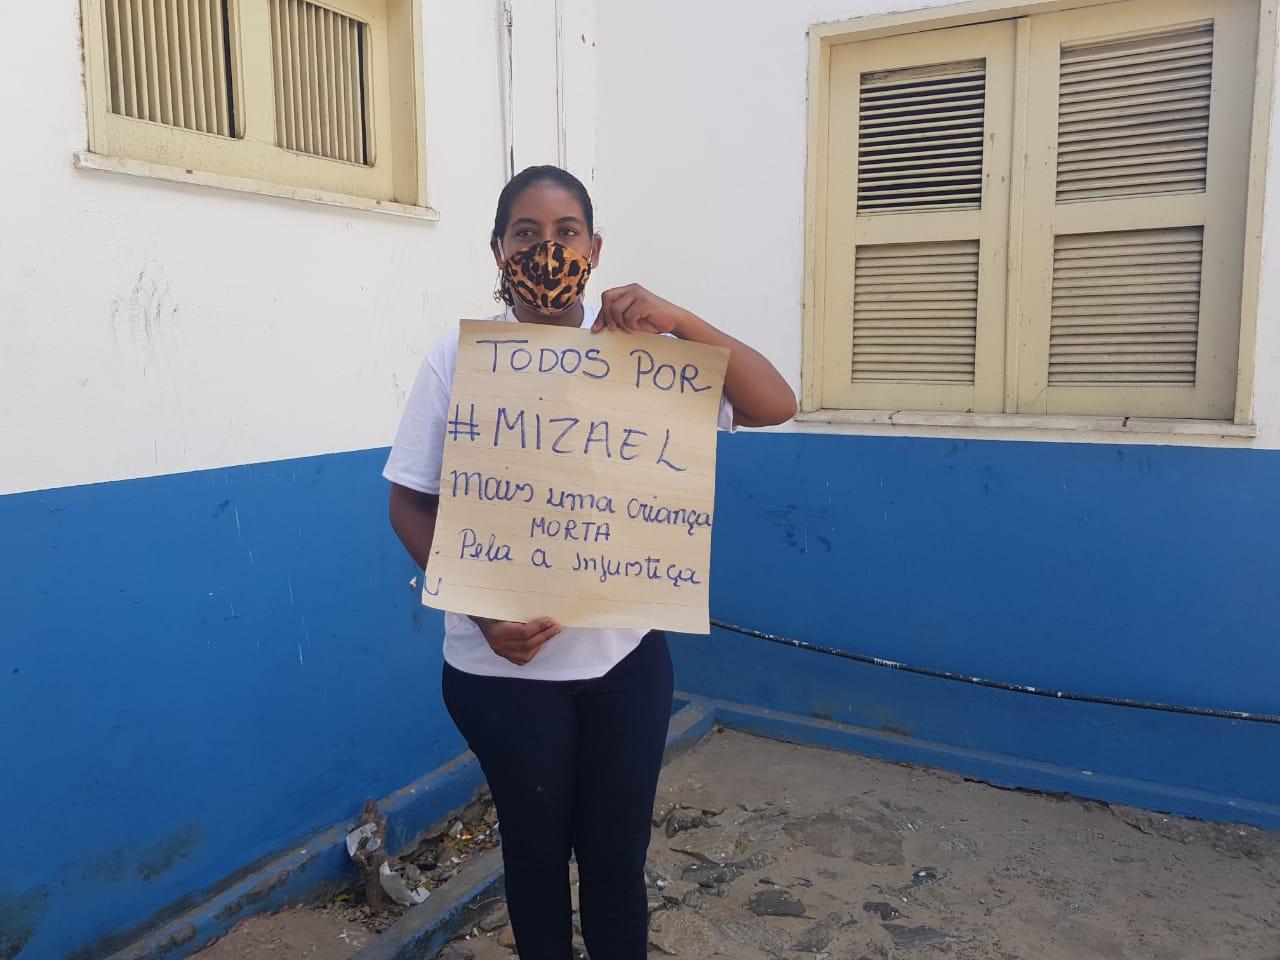 TODOS POR
#MIZAEL
Mais uma criança
MORTA
Pela a injustiça